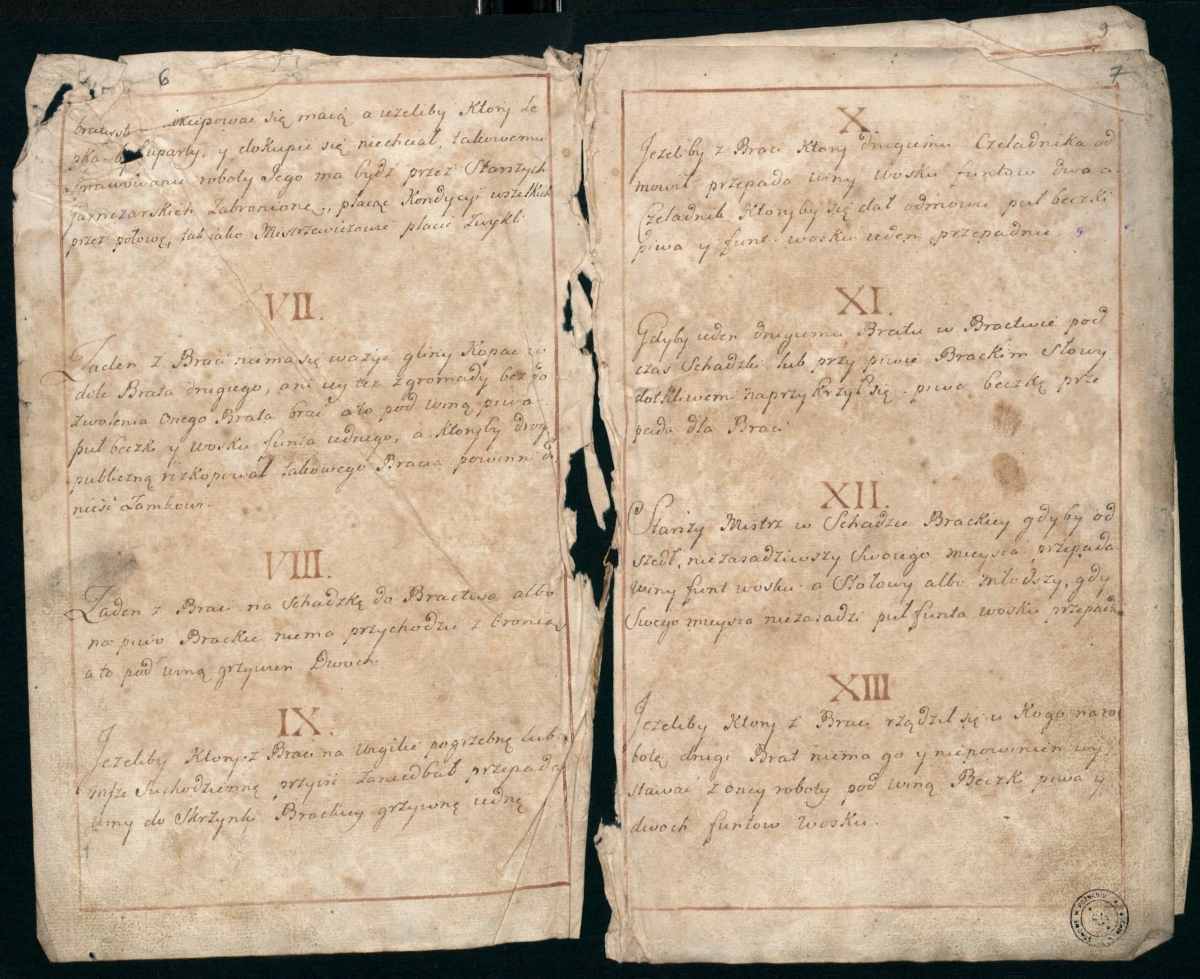 6
bractw wkupować się maią a ieżeliby Ktory
był uparty, y dokupić się niechciał, takowemu
Sprawowanie roboty Jego ma bydź przez Starszych
Garnczarskich Zabronione, płacąc Kondycyi wszelkich
przez połowę, tak iako Mistrzewiczowie płacić Zwykli
VII.
Zaden z Braci niema się ważyć gliny Kopać w
dole Brata drugiego, ani iey też z gromady bez po
zwolenia onego Brata brać a to pod winą piwa
puł beczki y wosku funta iednego, a ktoryby drogę
publiczną rozkopował takowego Bracia powinni do
nieść Zamkowi.
VIII.
Zaden z Braci na Schadzkę do Bractwa albo
na piwo Brackie niema przychodzić z bronią
a to pod winą grzywien Dwoch.
IX.
Jeżeliby Ktory z Braci na Wigilie pogrzebne lub
mszę Suchodzienną przyiść Zaniedbał przepada
winy do Skrzynki Brackiey grzywnę iedną
9
7
X.
Jeżeliby z Braci Ktory drugiemu Czeladnika od
mowił przepada winy Wosku funtow dwa a
Czeladnik Ktoryby się dał odmowić puł beczki
piwa y funt wosku ieden przepadnie
XI.
Gdyby ieden drugiemu Bratu w Bractwie pod
czas Schadzki lub przy piwie Brackim Słowy
dotkliwem naprzykrzył się piwa beczkę prze
pada dla Braci
XII.
Starszy Mistrz w Schadzce Brackiey gdyby od
szedł, niezasadziwszy Swoiego mieysca przepada
winy funt wosku a Stołowy albo młodszy, gdy
Swego mieysca niezasadzi puł funta wosku przepadnie
XIII
Jeżeliby Ktory z Braci rządził się u Kogo na ro
botę, drugi Brat niema go y niepowinien wy
stawać z oney roboty pod winą Beczki piwa y
dwoch funtow Wosku.